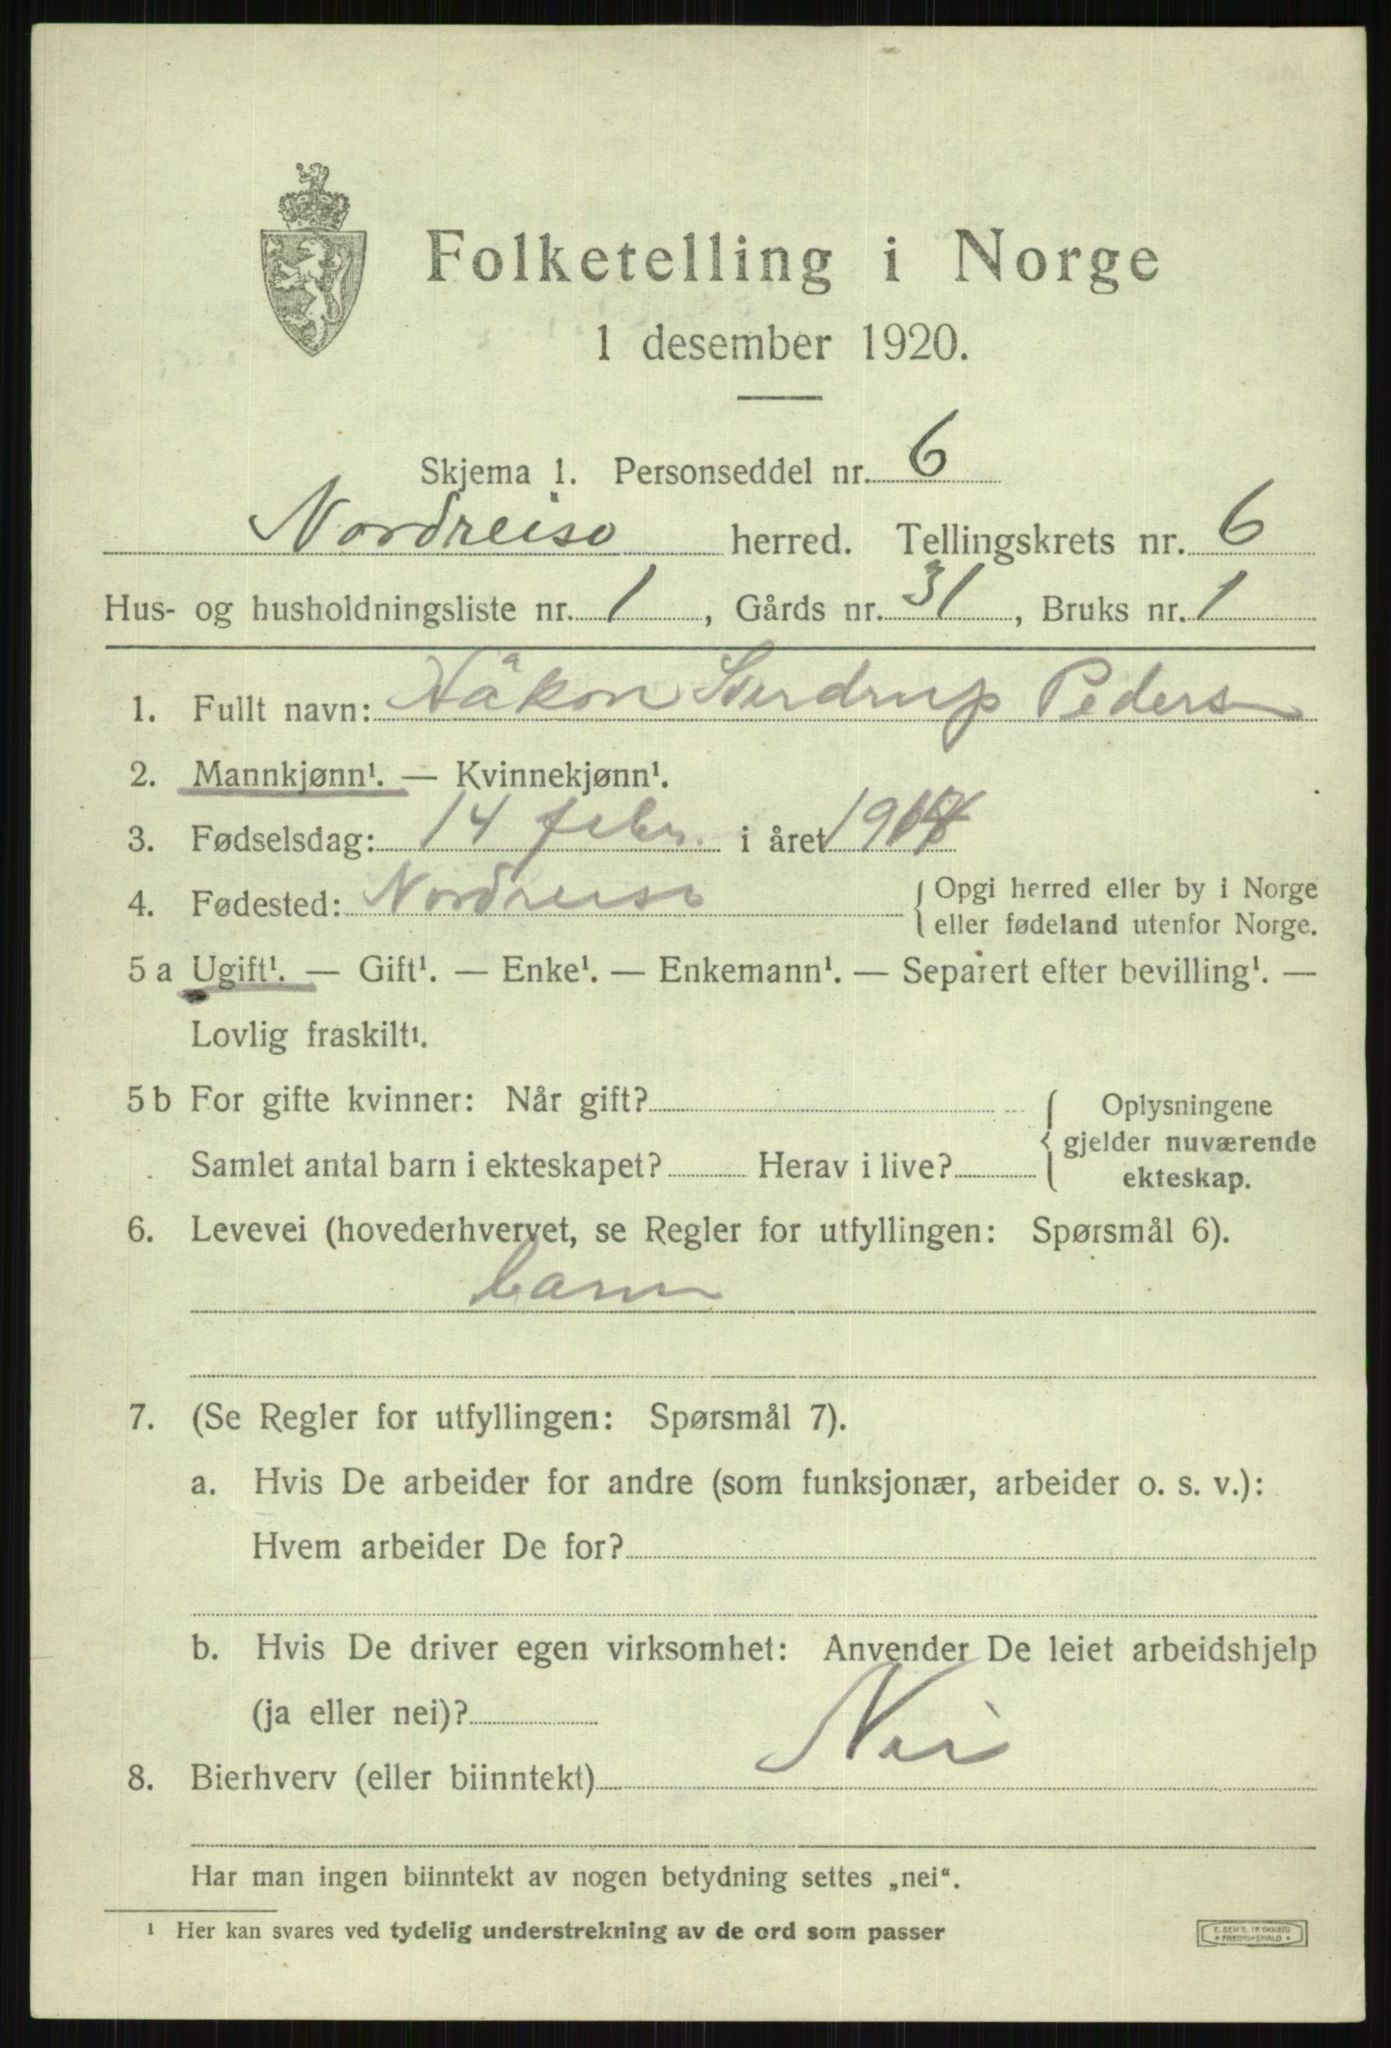 Folketelling i Norge
1 desember 1920.
Skjema 1. Personseddel nr. 6
Nordreisa herred. Tellingskrets nr. 6
Hus- og husholdningsliste nr. 1, Gårds nr. 31, Bruks nr. 1
1. Fullt navn: Håkon Sverdrup Pedersen
2. Mannkjønn¹. — Kvinnekjønn¹.
3. Fødselsdag: 14 febr. i året
4. Fødested: Nordreisa
{ Opgi herred eller by i Norge
eller fødeland utenfor Norge.
5 a Ugift¹. — Gift¹. — Enke¹. — Enkemann¹. — Separert efter bevilling¹. —
Lovlig fraskilt¹.
5 b For gifte kvinner: Når gift?
Samlet antal barn i ekteskapet? Herav i live?
{ Oplysningene
gjelder nuværende
ekteskap.
6. Levevei (hovederhvervet, se Regler for utfyllingen: Spørsmål 6).
barn
7. (Se Regler for utfyllingen: Spørsmål 7).
a. Hvis De arbeider for andre (som funksjonær, arbeider o. s. v.):
Hvem arbeider De for?
b. Hvis De driver egen virksomhet: Anvender De leiet arbeidshjelp
(ja eller nei)?
8. Bierhverv (eller biinntekt) Nei
Har man ingen biinntekt av nogen betydning settes „nei“.
¹ Her kan svares ved tydelig understrekning av de ord som passer
E. SEM'S TRYKKERI
* FREDRIKSHALD *